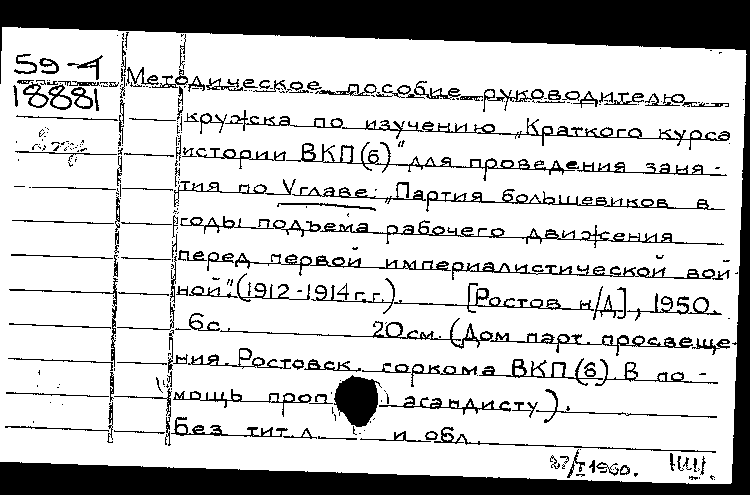 59-4
18881
Методическое пособие руководителю
кружка по изучению „Краткого курса
истории ВКП(б)" для проведения заня-
тия по V главе: „Партия большевиков в
годы подъема рабочего движения
перед первой империалистической вой-
ной". (1912-1914 г.г.). [Ростов н/Д], 1950.
6с. 20 см. (Дом парт. просвеще-
ния. Ростовск. горкома ВКП(б) В по-
мощь проп асандисту).
Без тит. л. и обл.
27/I 1960.